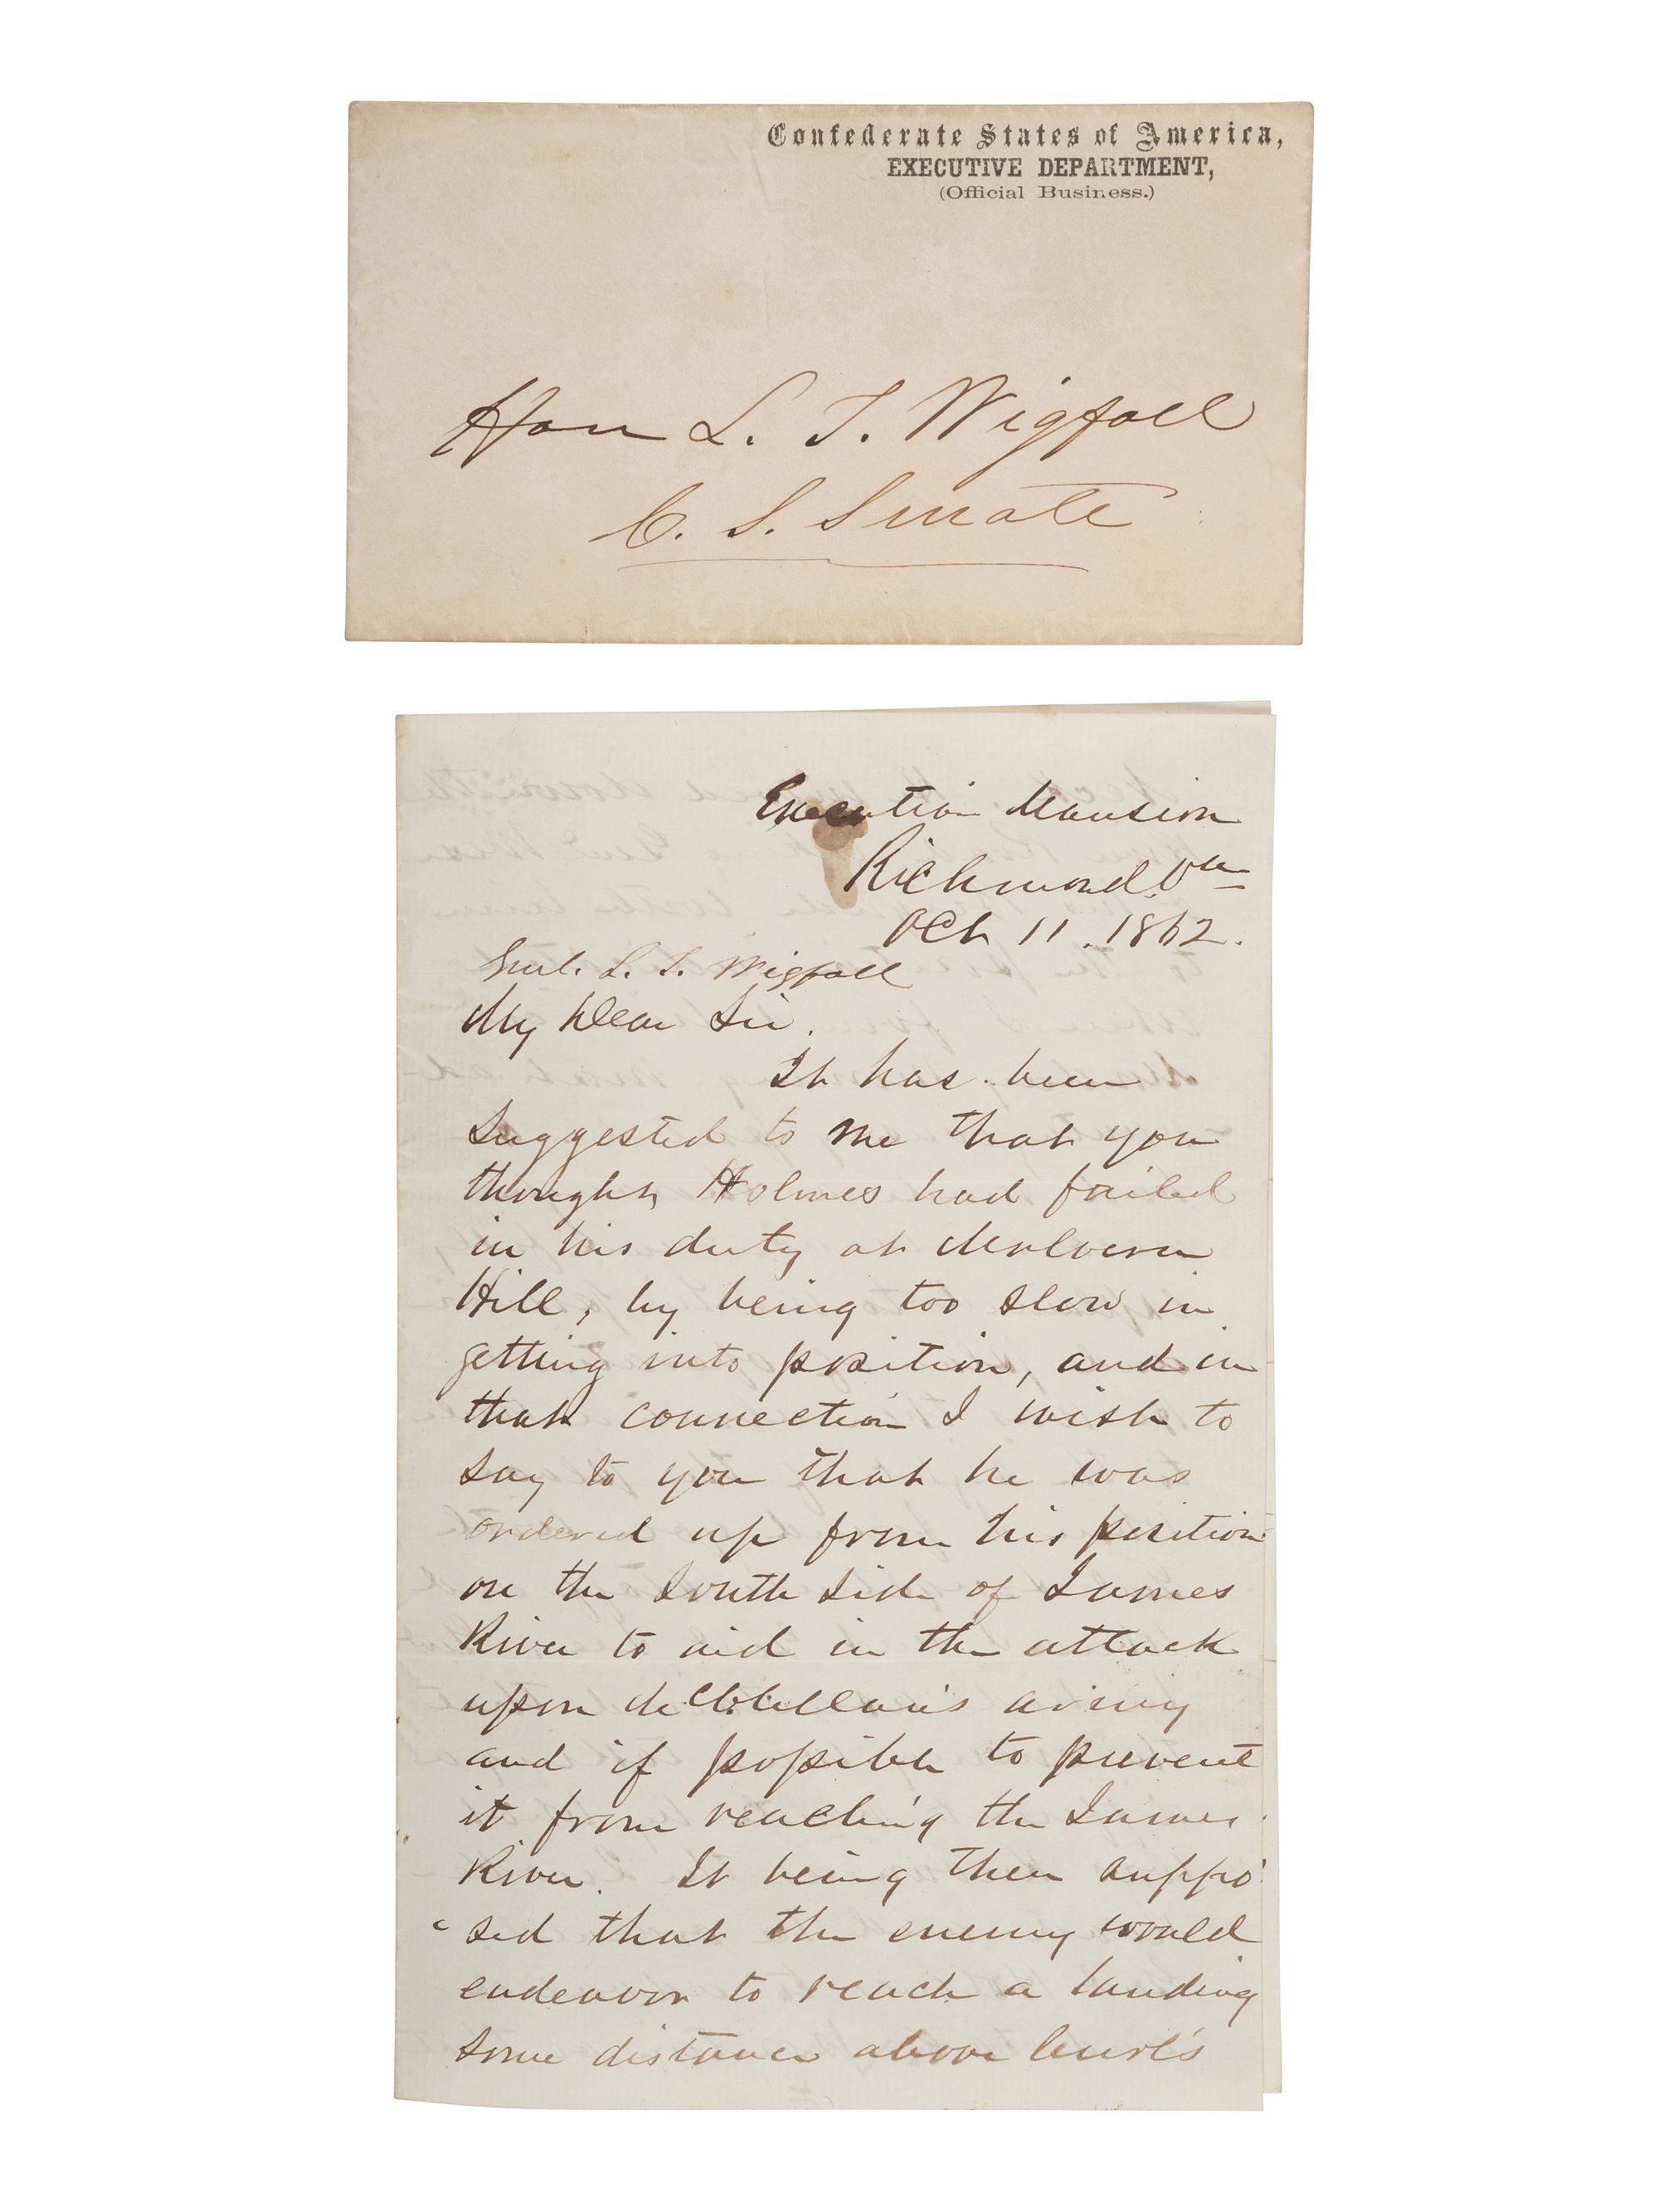 Confederate States of America,
EXECUTIVE DEPARTMENT,
(Official Business.)
Hon L. T. Wigfall
C. S. Senate
Executive Mansion
Richmond. Va
Oct 11. 1862.
Genl. L. T. Wigfall
My Dear Sir.
It has been
suggested to me that you
thought Holmes had failed
in his duty at Malvern
Hill, by being too slow in
getting into position, and in
that connection I wish to
say to you that he was
ordered up from his position
on the South side of James
River to aid in the attack
upon McClellan's army
and if possible to prevent
it from reaching the James
River. It being then suppo
sed that the enemy would
endeavor to reach a landing
some distance above Curl's